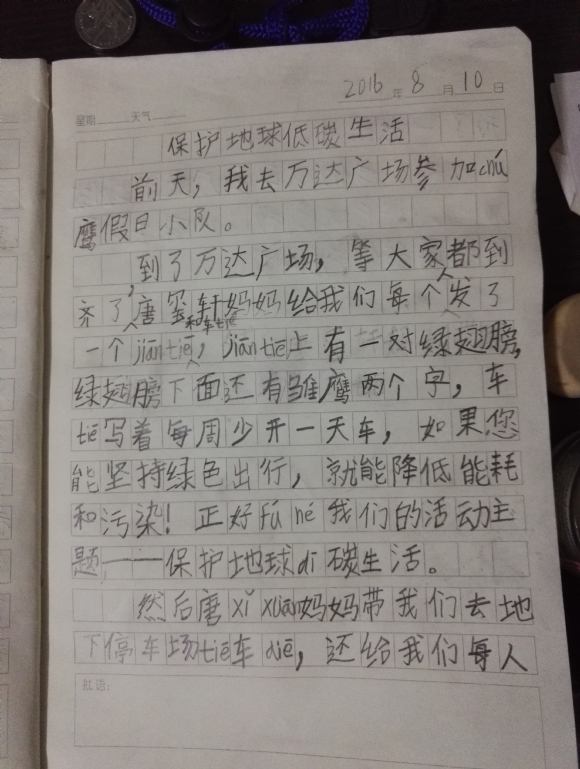 2016年8月10日
星期 天气
保护地球低碳生活
前天,我去万达广场参加chú
鹰假日小队。
到了万达广场,等大家都到
齐了,唐玺轩妈妈给我们每个人发了
一个jiāntiē和车tiē,jiāntiē上有一对绿翅膀,
绿翅膀下面还有雏鹰两个字,车
tiē写着每周少开一天车,如果您
能坚持绿色出行,就能降低能耗
和污染!正好fú hé我们的活动主
题——保护地球di碳生活。
然后唐xǐ xuān妈妈带我们去地
下停车场tiē车tiē,还给我们每人
批语: